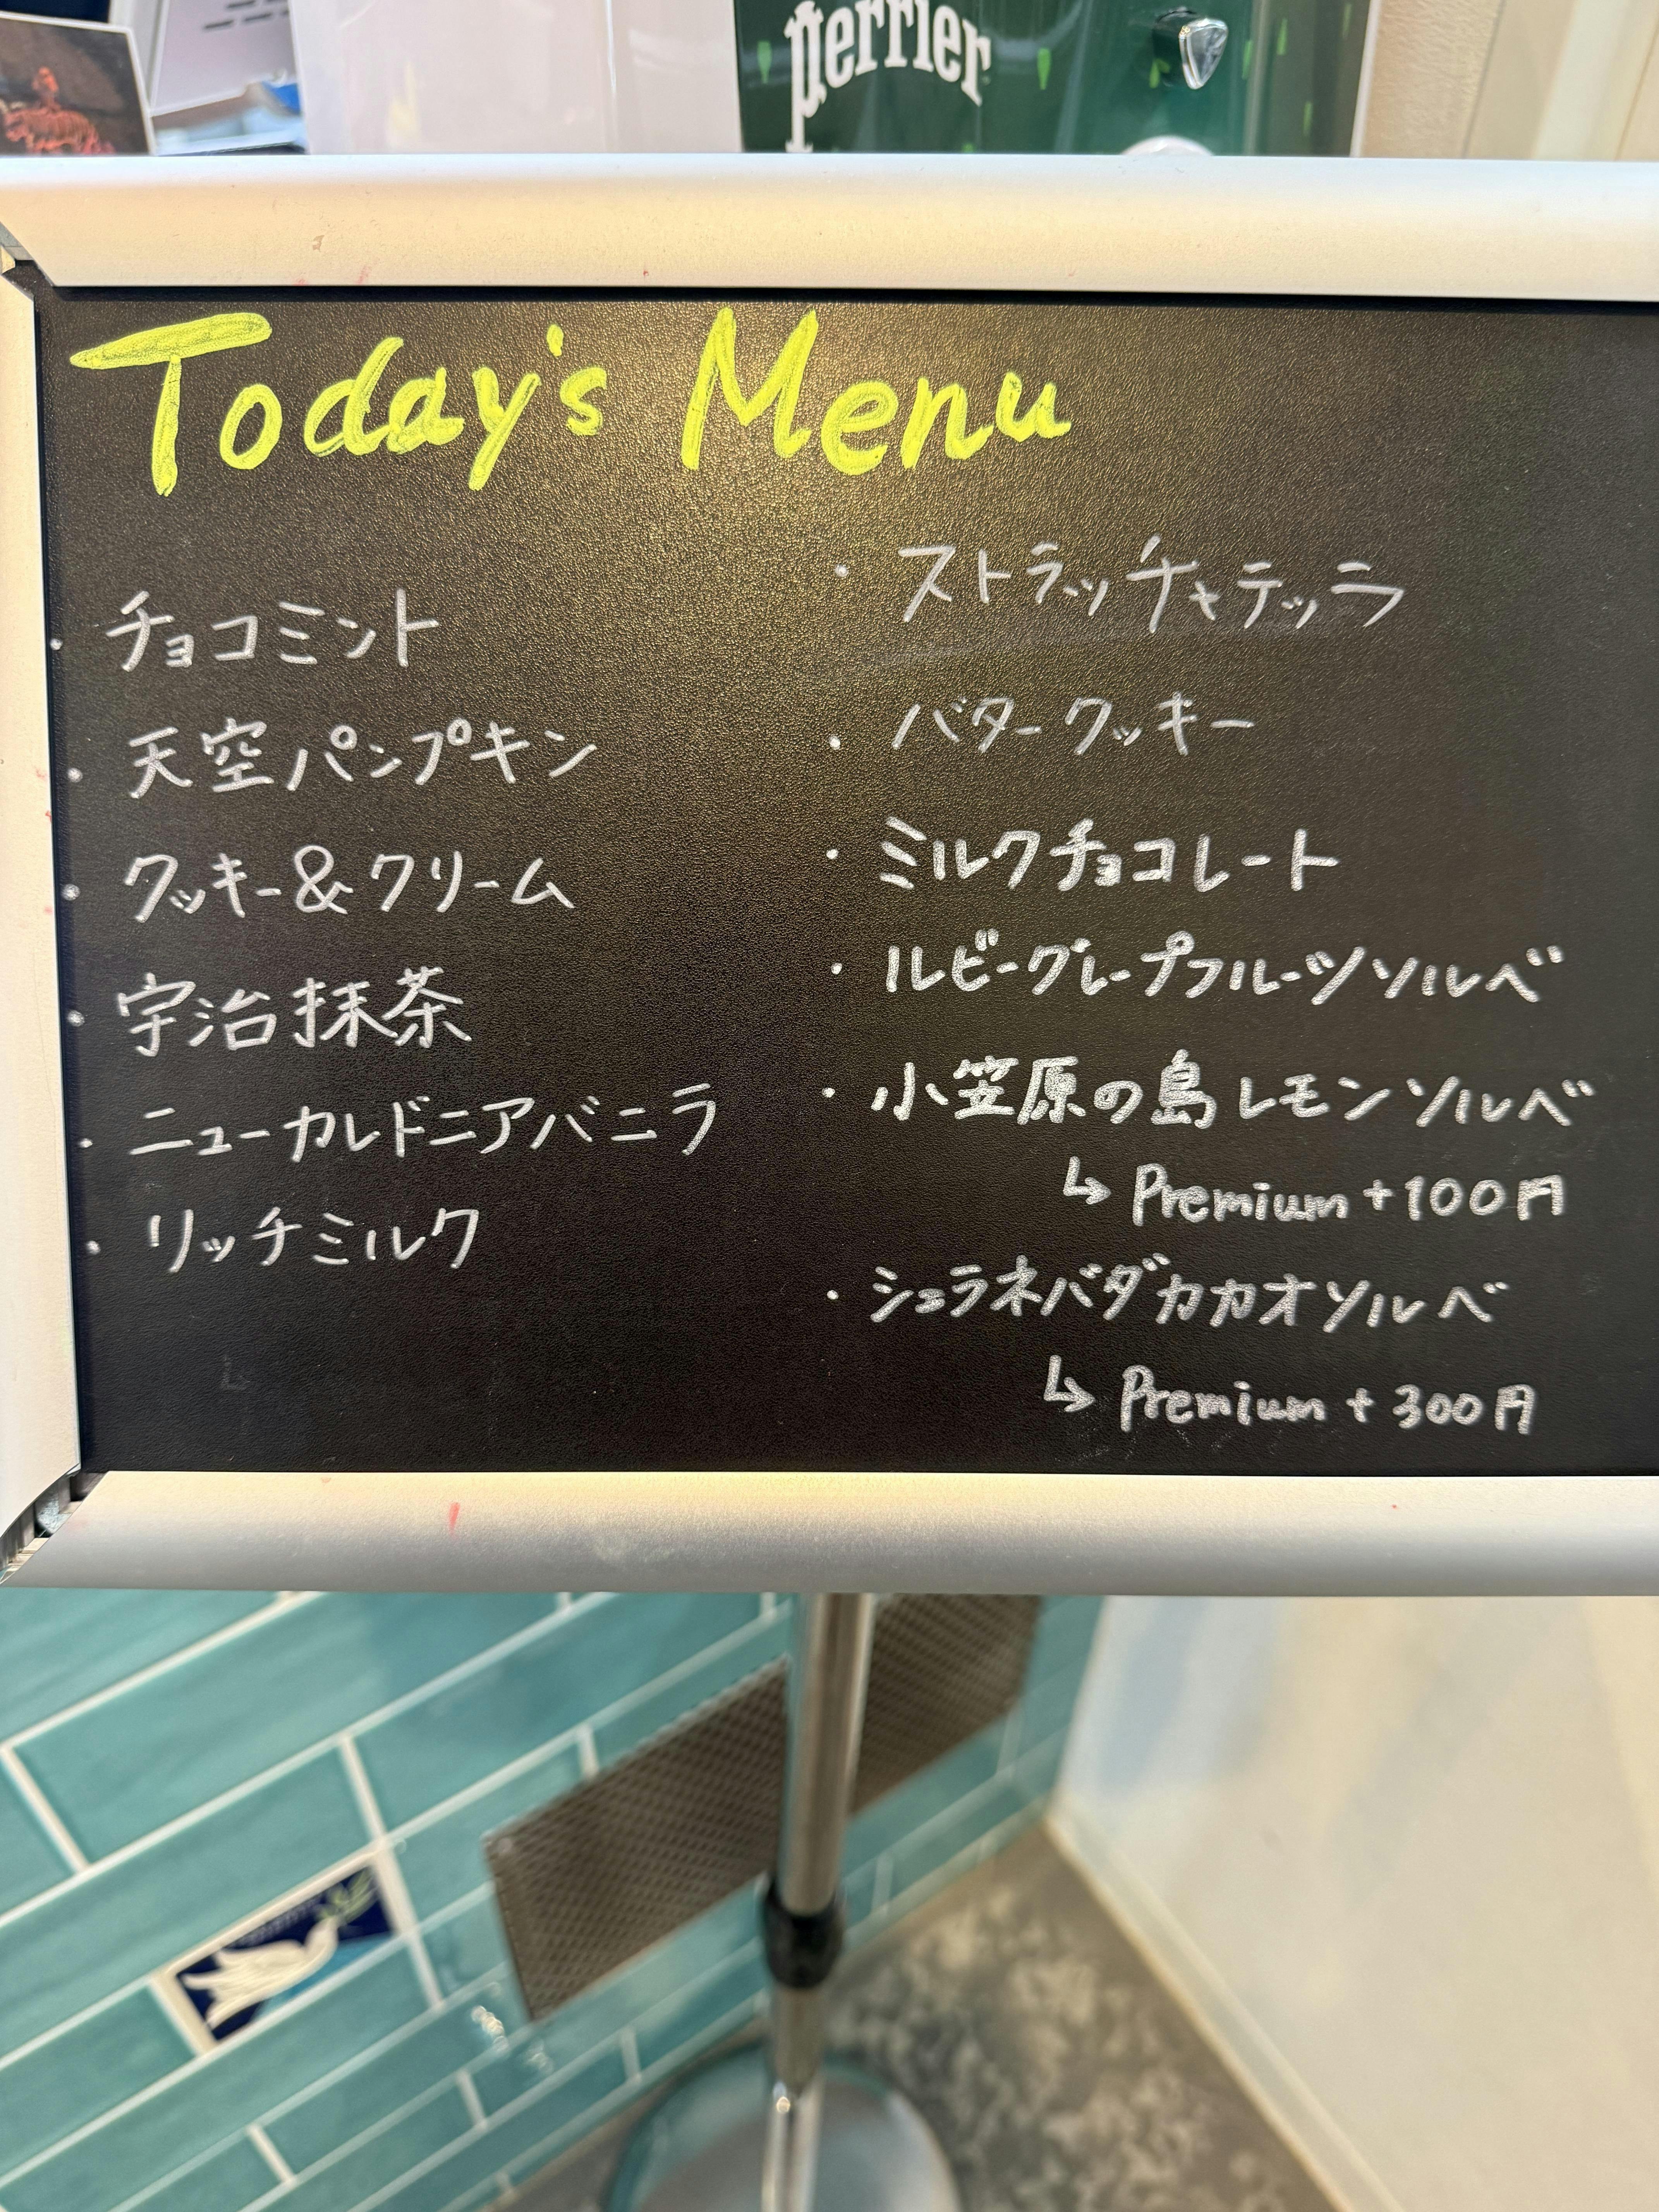 perrier
Today's Menu
・チョコミント
・天空パンプキン
・クッキー&クリーム
・宇治抹茶
・ニューカレドニアバニラ
・リッチミルク
・ストラッチャテッラ
・バタークッキー
・ミルクチョコレート
・ルビーグレープフルーツソルベ
・小笠原の島レモンソルベ
↳ Premium +100円
・シェラネバダカカオソルベ
↳ Premium + 300円